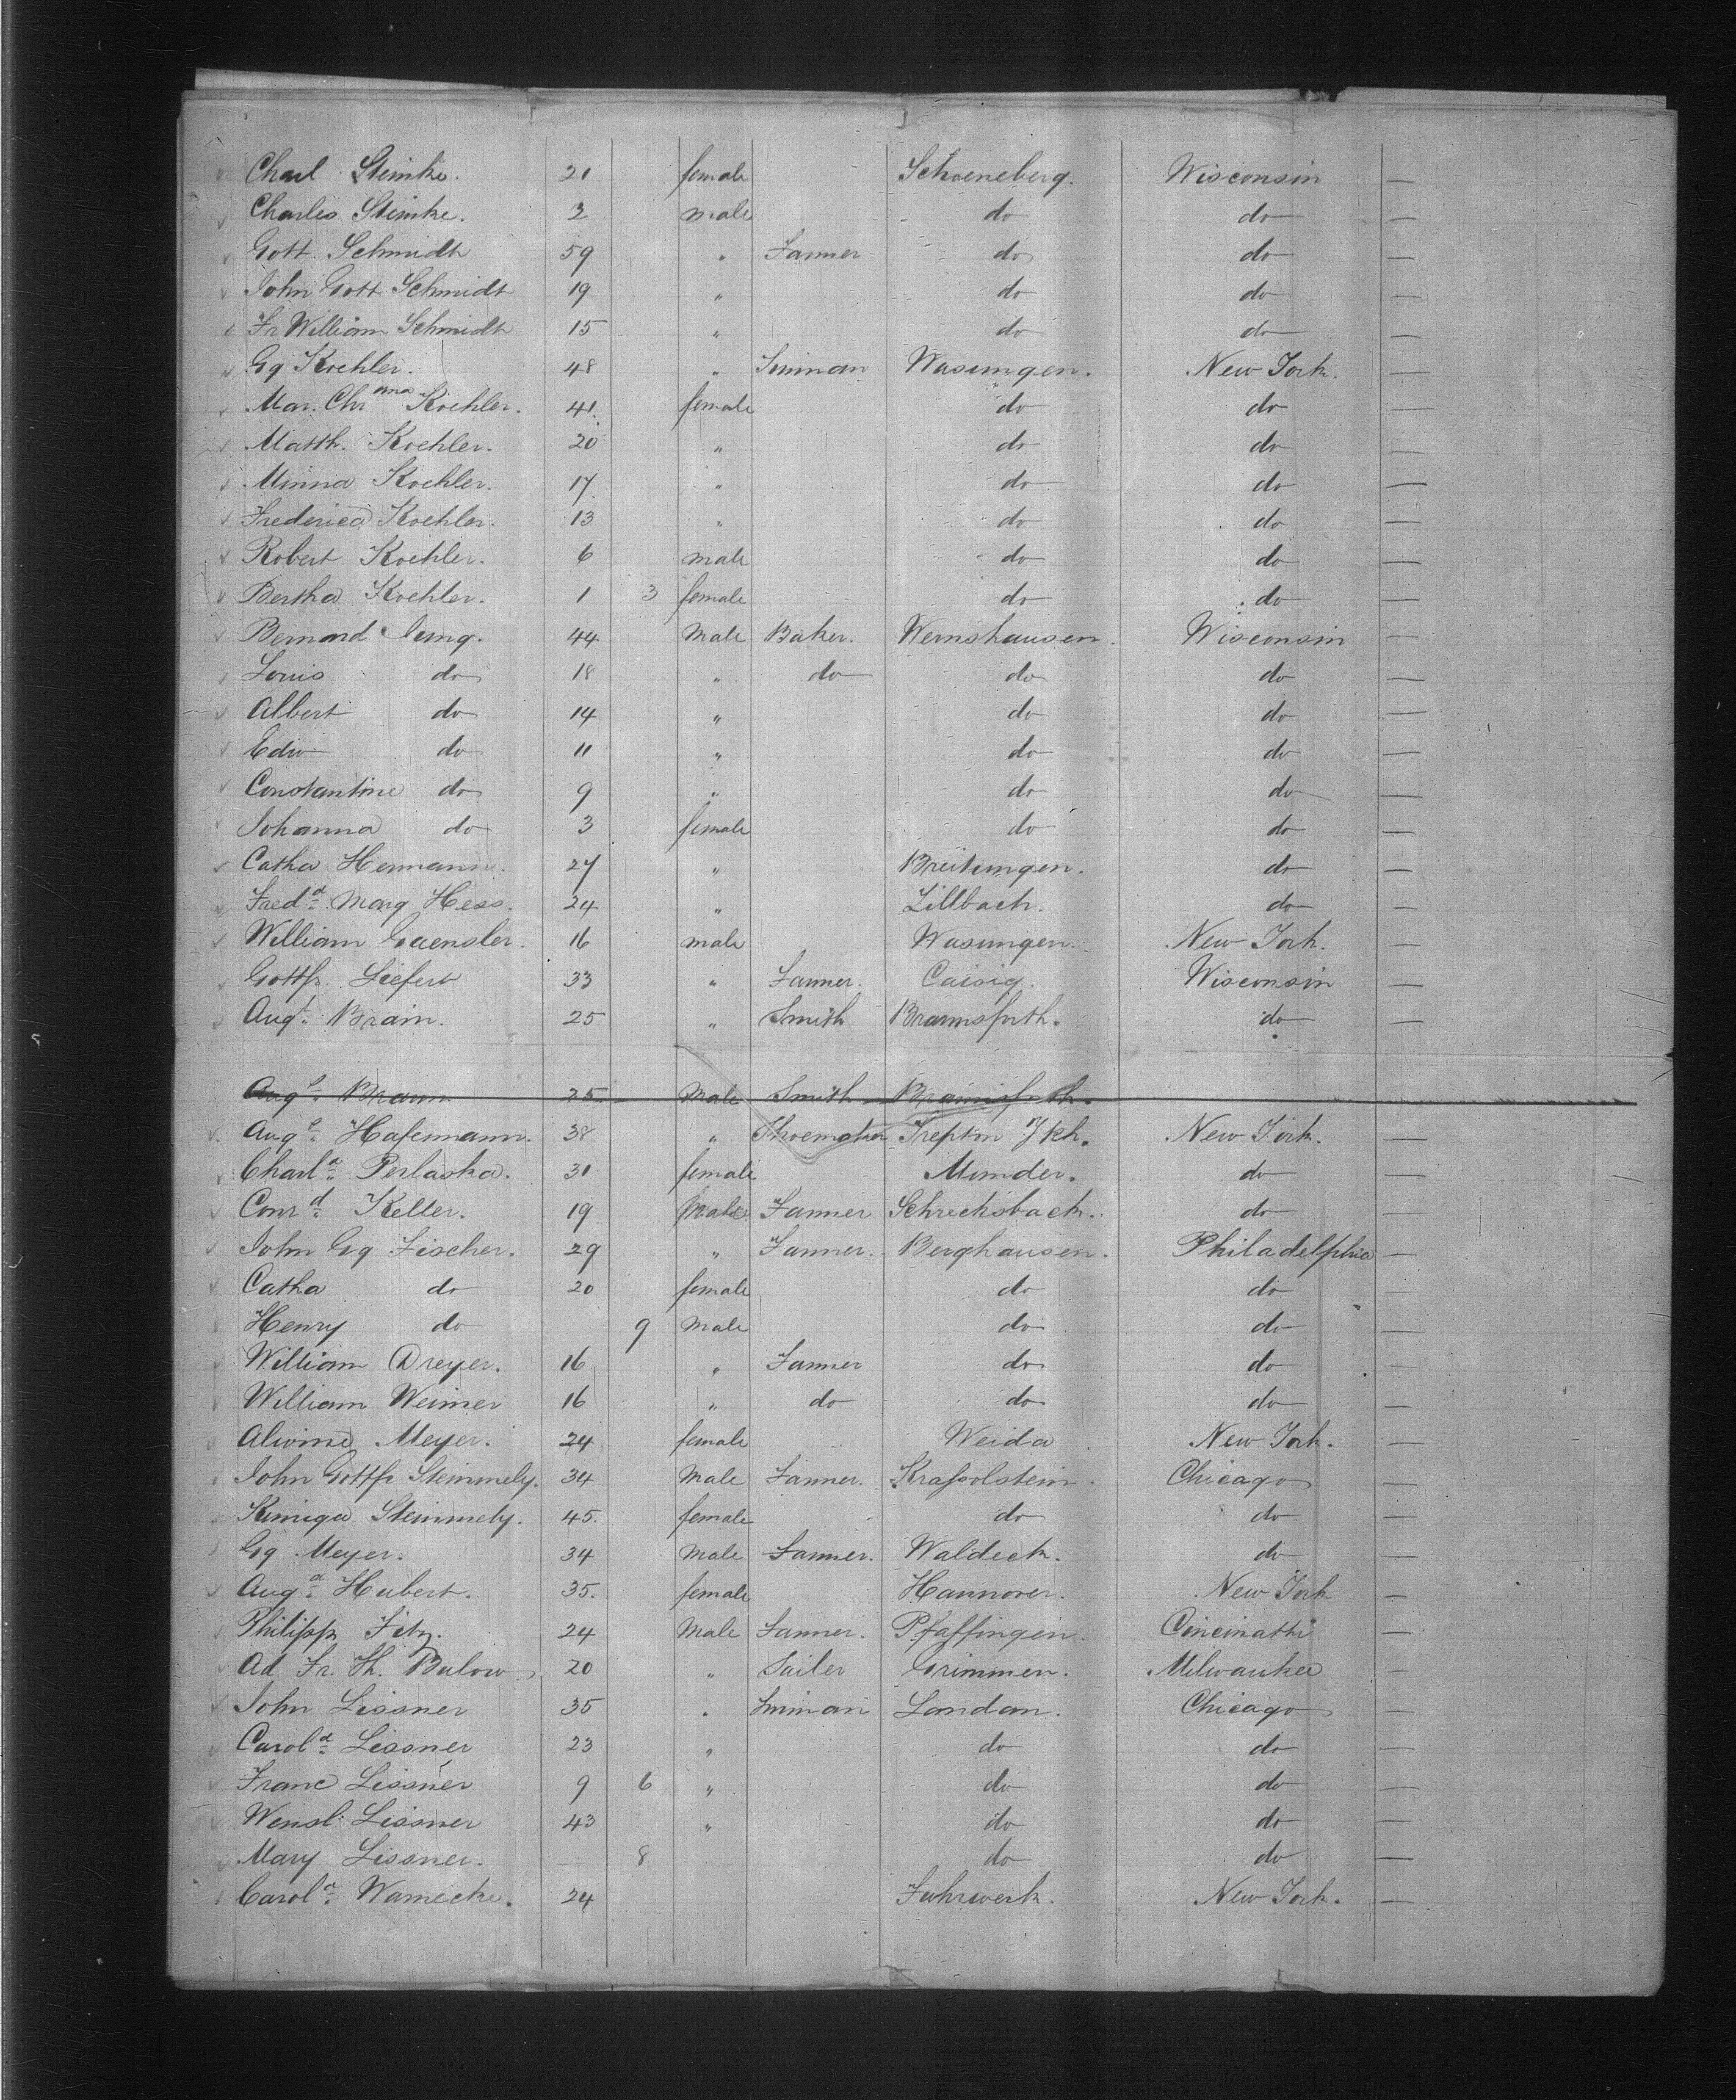 Charl. Steinke. 21 female Schoeneberg. Wisconsin —
Charles Steinke. 3 male do do —
Gott. Schmidt 59 " Farmer do do —
John Gott Schmidt 19 " do do —
Fr William Schmidt 15 " do do —
Gg Koehler. 48 " Wasungen. New York. —
Mar. Chr ana Koehler. 41. female do do —
Matth. Koehler. 20 " do do —
Minna Koehler. 17 " do do —
Frederica Koehler. 13 " do do —
Robert Koehler. 6 male do do —
Bertha Koehler. 1 3 female do do —
Bernard Jung. 44 Male Baker. Wernshausen. Wisconsin —
Louis do 18 " do do do —
Albert do 14 " do do —
Edw do 11 " do do —
Constantine do 9 " do do —
Johanna do 3 female do do —
Catha Hermann. 27 " Breitungen. do —
Fred a Marg Hess. 24 " Zillbach. do —
William Gaensler. 16 male Wasungen. New York. —
Gottfr. Siefert 33 " Farmer. Wisconsin —
Aug t Braun. 25 " Smith Braunsforth. do —
Aug t Braun 25 Male Smith Braunsforth.
Aug t Hafemann. 38 " Shoemaker Trepton New York. —
Charl a Perlaska. 31 female Munder. do —
Conr d Keller. 19 Male Farmer Schrecksbach. do —
John Gg Fischer. 29 " Farmer. Berghausen. Philadelphia —
Catha do 20 female do do —
Henry do 9 Male do do —
William Dreyer. 16 " Farmer do do —
William Weimer 16 " do do do —
Alwine Meyer. 24 female Weida New York. —
John Gottfr Steinmely. 34 Male Farmer. Chicago —
Steinmely. 45. female do do —
Gg Meyer. 34 Male Farmer. Waldeck. do —
Aug a Hubert. 35. female Hannover. New York —
Philipp Fitz. 24 Male Farmer. Pfaffingen. Cincinatti —
Ad Fr. Th. Bulow 20 " Sailer Grimmen. Milwaukee —
John Lissner 35 " Landan. Chicago —
Carol a Lissner 23 " do do —
Franc Lissner 9 6 " do do —
Wensl. Lissner 43 " do do —
Mary Lissner. 8 do do —
Carol a Warnecke. 24 Fuhrwerk. New York. —